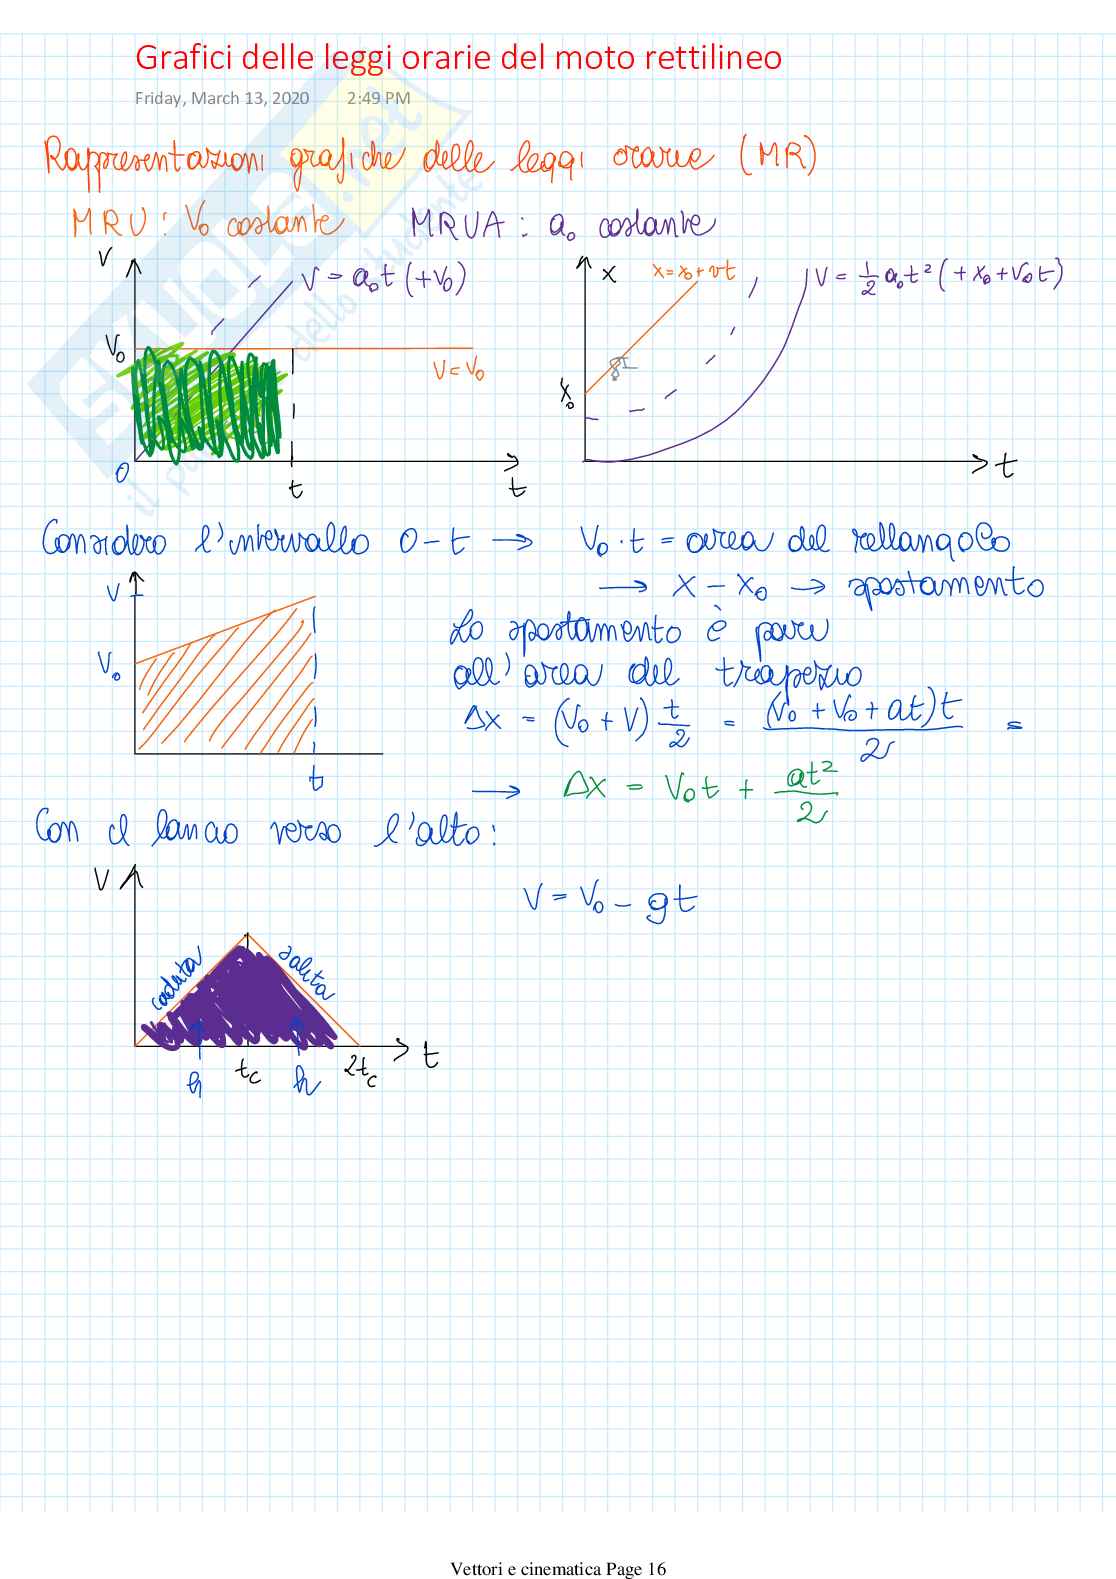 Grafici delle leggi orarie del moto rettilineo
Friday, March 13, 2020 2:49 PM
Rappresentazioni grafiche delle leggi orarie (MR)
MRU : V₀ costante MRUA : a₀ costante
V
V = a₀t (+V₀)
V₀
V = V₀
0
t
t
x
x = x₀ + vt
V = 1/2 a₀t² (+ x₀ + V₀t)
x₀
t
Considero l'intervallo 0 - t → V₀ · t = area del rettangolo
→ x - x₀ → spostamento
V
V₀
t
Lo spostamento è pari
all'area del trapezio
Δx = (V₀ + V) t/2 = (V₀ + V₀ + at)t/2 =
→ Δx = V₀t + at²/2
Con il lancio verso l'alto:
V
V = V₀ - gt
caduta
salita
h
tc
h
2tc
t
Vettori e cinematica Page 16